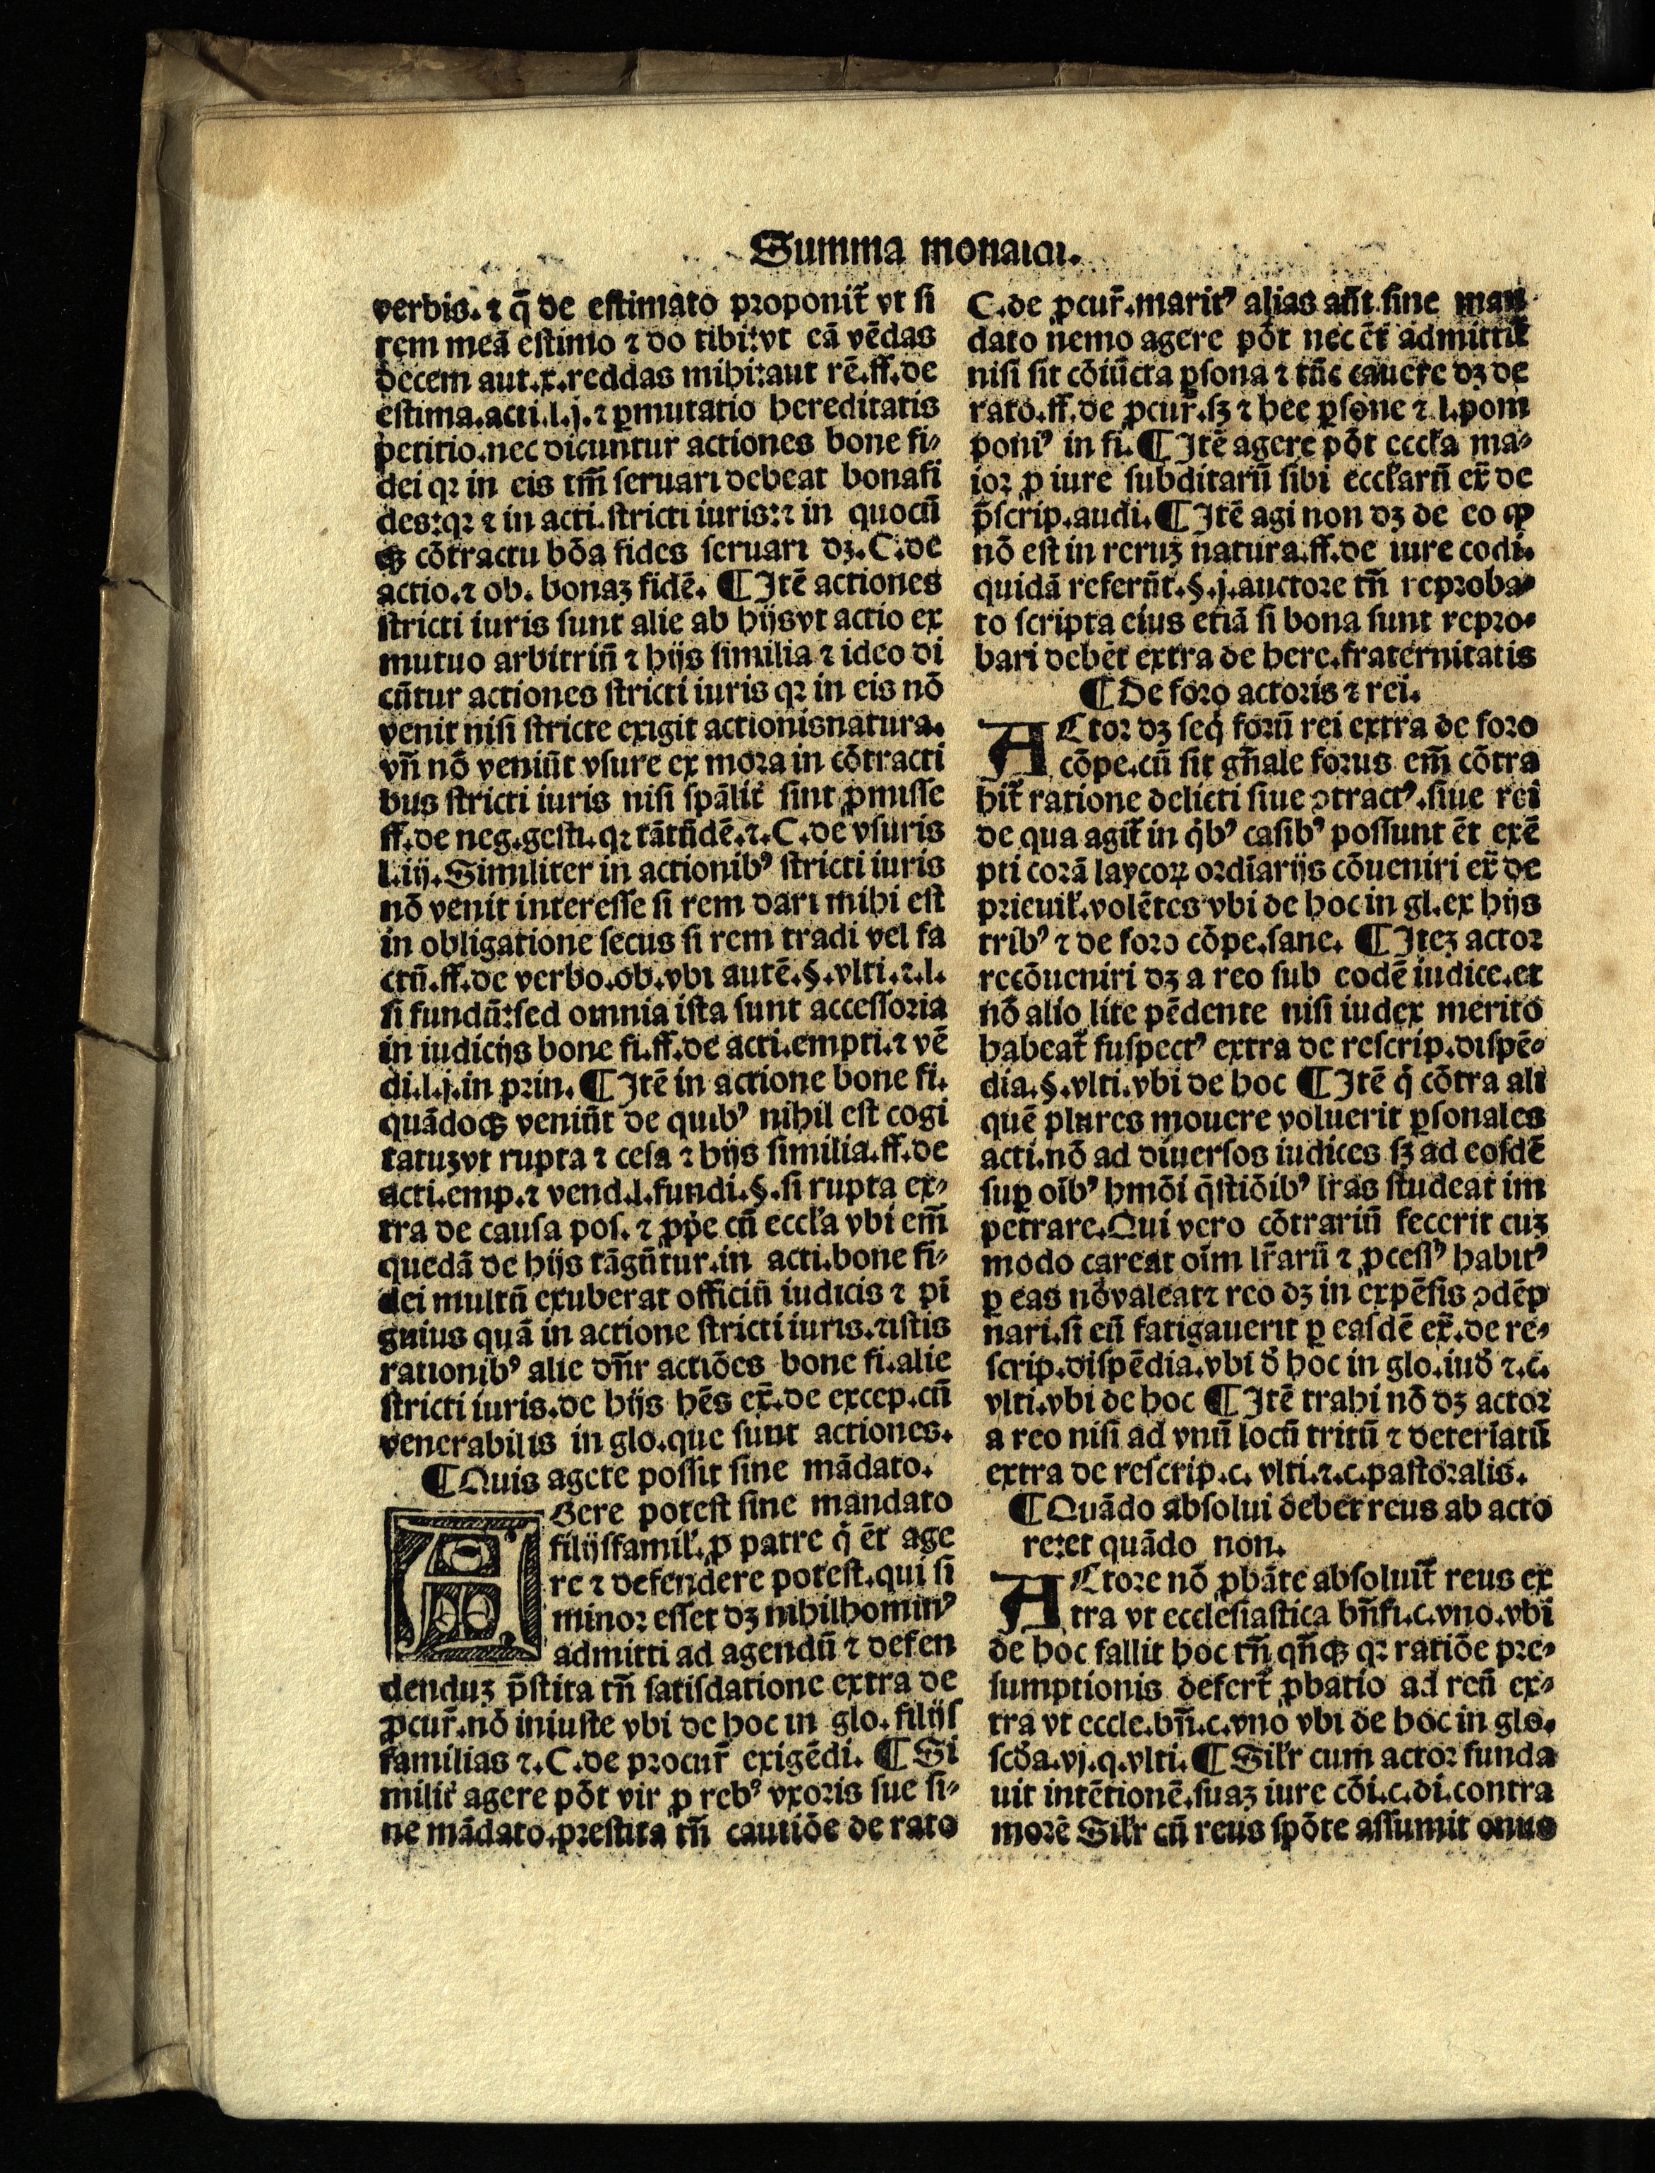 Summa monaldi.
verbis. ⁊ q̄ de estimato proponit᷑ vt si
rem meā estimo ⁊ do tibi:vt eā vēdas
decem aut.x.reddas mihi:aut rē.ff.de
estima.acti.l.j.⁊ ꝑmutatio hereditatis
petitio.nec dicuntur actiones bone fi⸗
dei qꝛ in eis tm̄ seruari debeat bonafi
des:qꝛ ⁊ in acti.stricti iuris:⁊ in quocū
qꝫ cōtractu bōa fides seruari dꝫ.C.de
actio.⁊ ob. bonaꝫ fidē. ¶ Itē actiones
stricti iuris sunt alie ab hijsvt actio ex
mutuo arbitriū ⁊ hijs similia ⁊ ideo di
cūtur actiones stricti iuris qꝛ in eis nō
venit nisi stricte exigit actionisnatura.
vn̄ nō veniūt vsure ex mora in cōtracti
bus stricti iuris nisi spālit᷑ sint ꝓmisse
ff.de neg.gesti.qꝛ tātūdē.⁊.C.de vsuris
l.iij.Similiter in actionibꝰ stricti iuris
nō venit interesse si rem dari mihi est
in obligatione secus si rem tradi vel fa
ctū.ff.de verbo.ob.vbi autē.§.vlti.⁊.l.
si fundū:sed omnia ista sunt accessoria
in iudicijs bone fi.ff.de acti.empti.⁊ vē
di.l.j.in prin. ¶ Itē in actione bone fi.
quādoqꝫ veniūt de quibꝰ nihil est cogi
tatuꝫvt rupta ⁊ cesa ⁊ hijs similia.ff.de
acti.emp.⁊ vend.l.fundi.§.si rupta ex⸗
tra de causa pos. ⁊ ꝓpe cū eccľa vbi em̄
quedā de hijs tāgūtur.in acti.bone fi⸗
dei multū exuberat officiū iudicis ⁊ pī
guius quā in actione stricti iuris.⁊istis
rationibꝰ alie dn̄r actiōes bone fi.alie
stricti iuris.de hijs hēs ex̄.de excep.cū
venerabilis in glo.que sunt actiones.
¶ Quis agere possit sine mādato.
AGere potest sine mandato
filijsfamil̕.ꝓ patre q̇ ēt age
re ⁊ defendere potest.qui si
minor esset dꝫ nihilhominꝰ
admitti ad agendū ⁊ defen
denduꝫ p̄stita tn̄ satisdatione extra de
ꝓcur̄.nō iniuste vbi de hoc in glo. filijs
familias ⁊.C.de procur̄ exigēdi. ¶ Si
milit᷑ agere pōt vir ꝓ rebꝰ vxoris sue si⸗
ne mādato.prestita tn̄ cautiōe de rato
C.de ꝓcur̄.maritꝰ alias aūt.sine man
dato nemo agere pōt nec ēt᷑ admittit᷑
nisi sit cōiūcta ꝑsona ⁊ tūc cauere dꝫ de
rato.ff.de ꝓcur̄.sꝫ ⁊ hee ꝑsone ⁊.l.pom
poniꝰ in fi. ¶ Itē agere pōt eccľa ma⸗
ior ꝓ iure subditarū sibi eccľarū ex̄ de
p̄scrip.audi. ¶ Itē agi non dꝫ de eo qꝙ
nō est in reruꝫ natura.ff.de iure codi.
quidā referūt.§.j.auctore tn̄ reproba⸗
to scripta eius etiā si bona sunt repro⸗
bari debēt extra de here.fraternitatis
¶ De foro actoris ⁊ rei.
ACtor dꝫ seq̇ forū rei extra de foro
cōpe.cū sit gn̄ale forus em̄ cōtra
hit᷑ ratione delicti siue ↄtractꝰ.siue rei
de qua agit᷑ in q̇bꝰ casibꝰ possunt ēt exē
pti corā laycoꝝ ordīarijs cōueniri ex̄ de
prieuil̕.volētes vbi de hoc in gl.ex hijs
tribꝰ ⁊ de foro cōpe.sane. ¶ Iteꝫ actor
recōueniri dꝫ a reo sub eodē iudice.et
nō alio lite pēdente nisi iudex merito
habeat᷑ suspectꝰ extra de rescrip.dispē⸗
dia.§.vlti.vbi de hoc ¶ Itē q̇ cōtra ali
quē plures mouere voluerit ꝑsonales
acti.nō ad diuersos iudices sꝫ ad eosdē
suꝑ oībꝰ hmōi q̄stiōibꝰ lr̄as studeat im
petrare.Qui vero cōtrariū fecerit cuꝫ
modo careat oīm lr̄arū ⁊ ꝓcessꝰ habitꝰ
ꝑ eas nōvaleat⁊ reo dꝫ in expēsis ↄdēp
nari.si eū fatigauerit ꝑ easdē ex̄.de re⸗
scrip.dispēdia.vbi ď hoc in glo.iuď ⁊.c.
vlti.vbi de hoc ¶ Itē trahi nō dꝫ actor
a reo nisi ad vnū locū tritū ⁊ deterīatū
extra de rescrip.c. vlti.⁊.c.pastoralis.
¶ Quādo absolui debet reus ab acto
re:et quādo non.
ACtore nō ꝓbāte absoluit᷑ reus ex
tra vt ecclesiastica bn̄fi.c.vno.vbi
de hoc fallit hoc tn̄ qn̄qꝫ qꝛ ratiōe pre⸗
sumptionis defert᷑ ꝓbatio ad reū ex⸗
tra vt eccle.bn̄.c.vno vbi de hoc in glo.
scďa.vj.q.vlti. ¶ Sil̕r cum actor funda
uit intētionē.suaꝫ iure cōi.c.di.contra
morē Sil̕r cū reus spōte assumit onus